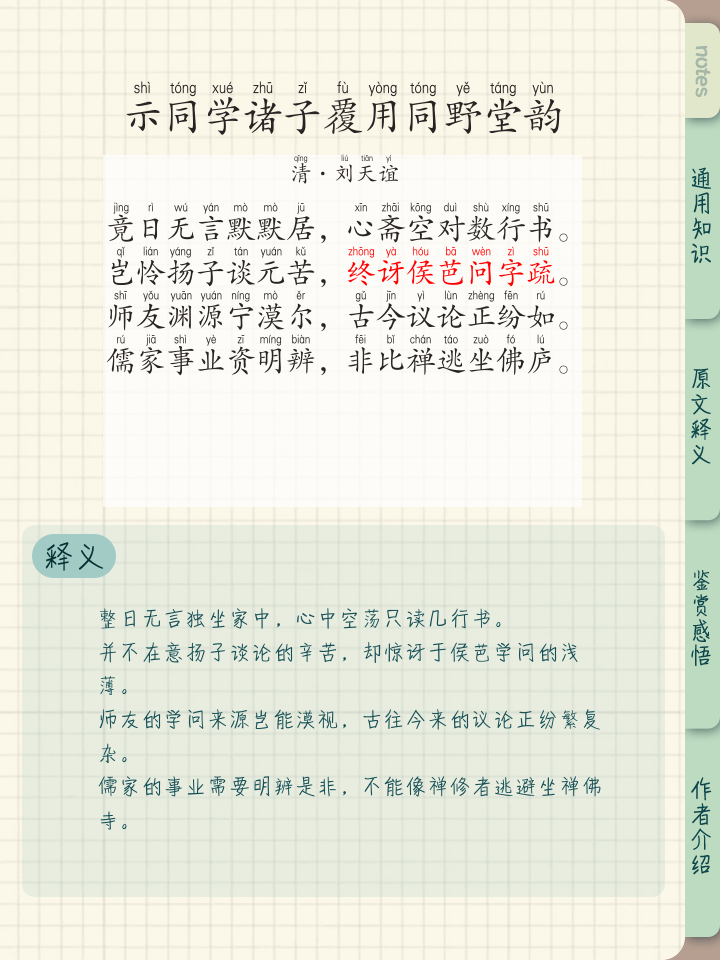 shì tóng xué zhū zǐ fù yòng tóng yě táng yùn
示同学诸子覆用同野堂韵
qīng liú tiān yì
清·刘天谊
jìng rì wú yán mò mò jū xīn zhāi kōng duì shù xíng shū
竟日无言默默居，心斋空对数行书。
qǐ lián yáng zǐ tán yuán kǔ zhōng yà hóu bā wèn zì shū
岂怜扬子谈元苦，终讶侯芭问字疏。
shī yǒu yuān yuán níng mò ěr gǔ jīn yì lùn zhèng fēn rú
师友渊源宁漠尔，古今议论正纷如。
rú jiā shì yè zī míng biàn fēi bǐ chán táo zuò fó lú
儒家事业资明辨，非比禅逃坐佛庐。
释义
整日无言独坐家中，心中空荡只读几行书。
并不在意扬子谈论的辛苦，却惊讶于侯芭学问的浅
薄。
师友的学问来源岂能漠视，古往今来的议论正纷繁复
杂。
儒家的事业需要明辨是非，不能像禅修者逃避坐禅佛
寺。
notes
通用知识
原文释义
鉴赏感悟
作者介绍